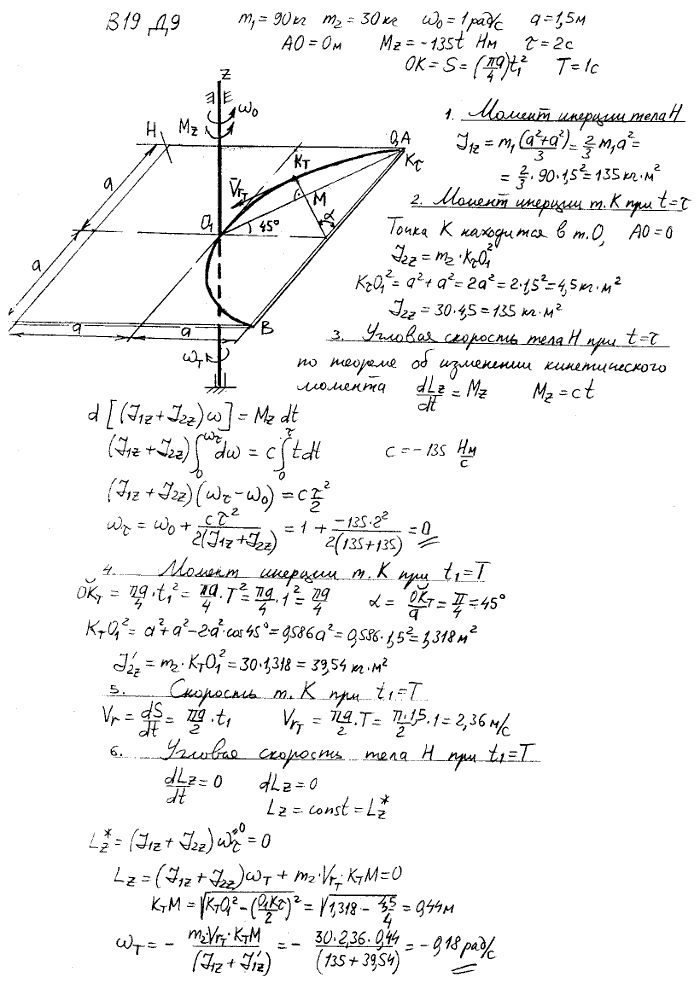 В19 Д9
m₁ = 90 кг m₂ = 30 кг ω₀ = 1 рад/с a = 1,5 м
AO = 0 м M_z = -135t Нм τ = 2с
OK = S = (πa/4)t₁² T = 1с
z
ω₀
M_z
H
O,A
K_T
K_τ
V̄_rT
M
α
O₁
45°
a
a
a
a
B
ω_T
1. Момент инерции тела H
J₁z = m₁(a²+a²)/3 = 2/3 m₁a² =
= 2/3 · 90 · 1,5² = 135 кг·м²
2. Момент инерции т. К при t=τ
Точка К находится в т.О, AO=0
J₂z = m₂·K_τO₁²
K_τO₁² = a²+a² = 2a² = 2·1,5² = 4,5 кг·м²
J₂z = 30·4,5 = 135 кг·м²
3. Угловая скорость тела H при t=τ
по теореме об изменении кинетического
момента dL_z/dt = M_z M_z = ct
d[(J₁z+J₂z)ω] = M_z dt
(J₁z+J₂z)∫₀^ω_τ dω = c∫₀^τ t dt c = -135 Нм/с
(J₁z+J₂z)(ω_τ-ω₀) = cτ²/2
ω_τ = ω₀ + cτ²/2(J₁z+J₂z) = 1 + -135·2²/2(135+135) = 0
4. Момент инерции т. К при t₁=T
OK_T = πa/4·t₁² = πa/4·T² = πa/4·1² = πa/4 α = OK_T/a = π/4 = 45°
K_TO₁² = a²+a²-2·a²·cos45° = 0,586a² = 0,586·1,5² = 1,318 м²
J'₂z = m₂·K_TO₁² = 30·1,318 = 39,54 кг·м²
5. Скорость т. К при t₁=T
V_r = dS/dt = πa/2·t₁ V_rT = πa/2·T = π·1,5/2·1 = 2,36 м/с
6. Угловая скорость тела H при t₁=T
dL_z/dt = 0 dL_z = 0
L_z = const = L_z*
L_z* = (J₁z+J₂z)ω_τ^=0 = 0
L_z = (J₁z+J₂z)ω_T + m₂·V_rT·K_TM = 0
K_TM = √(K_TO₁² - (O₁K_τ/2)²) = √(1,318 - 4,5/4) = 0,44 м
ω_T = - m₂·V_rT·K_TM/(J₁z+J'₁z) = - 30·2,36·0,44/(135+39,54) = -0,18 рад/с